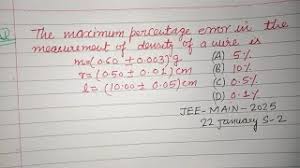 The maximum percentage error in the
measurement of density of a wire is
m=(0.60 ± 0.003)g (A) 5%
r=(0.50 ± 0.01)cm (B) 10%
l=(10.00 ± 0.05)cm (C) 0.5%
(D) 0.1%
JEE-MAIN-2025
22 January S-2